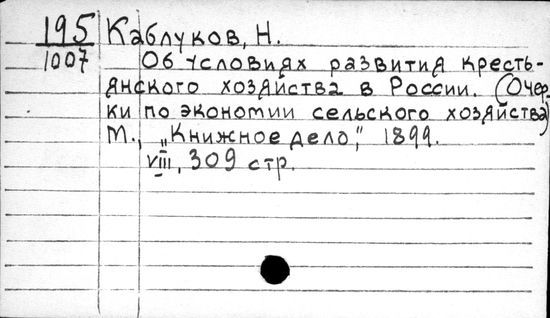 195 Каблуков, Н.
1007 Об условиях развития кресть-
янского хозяйства в России. (Очер-
ки по экономии сельского хозяйства)
М., „Книжное дело", 1899.
VIII, 309 стр.